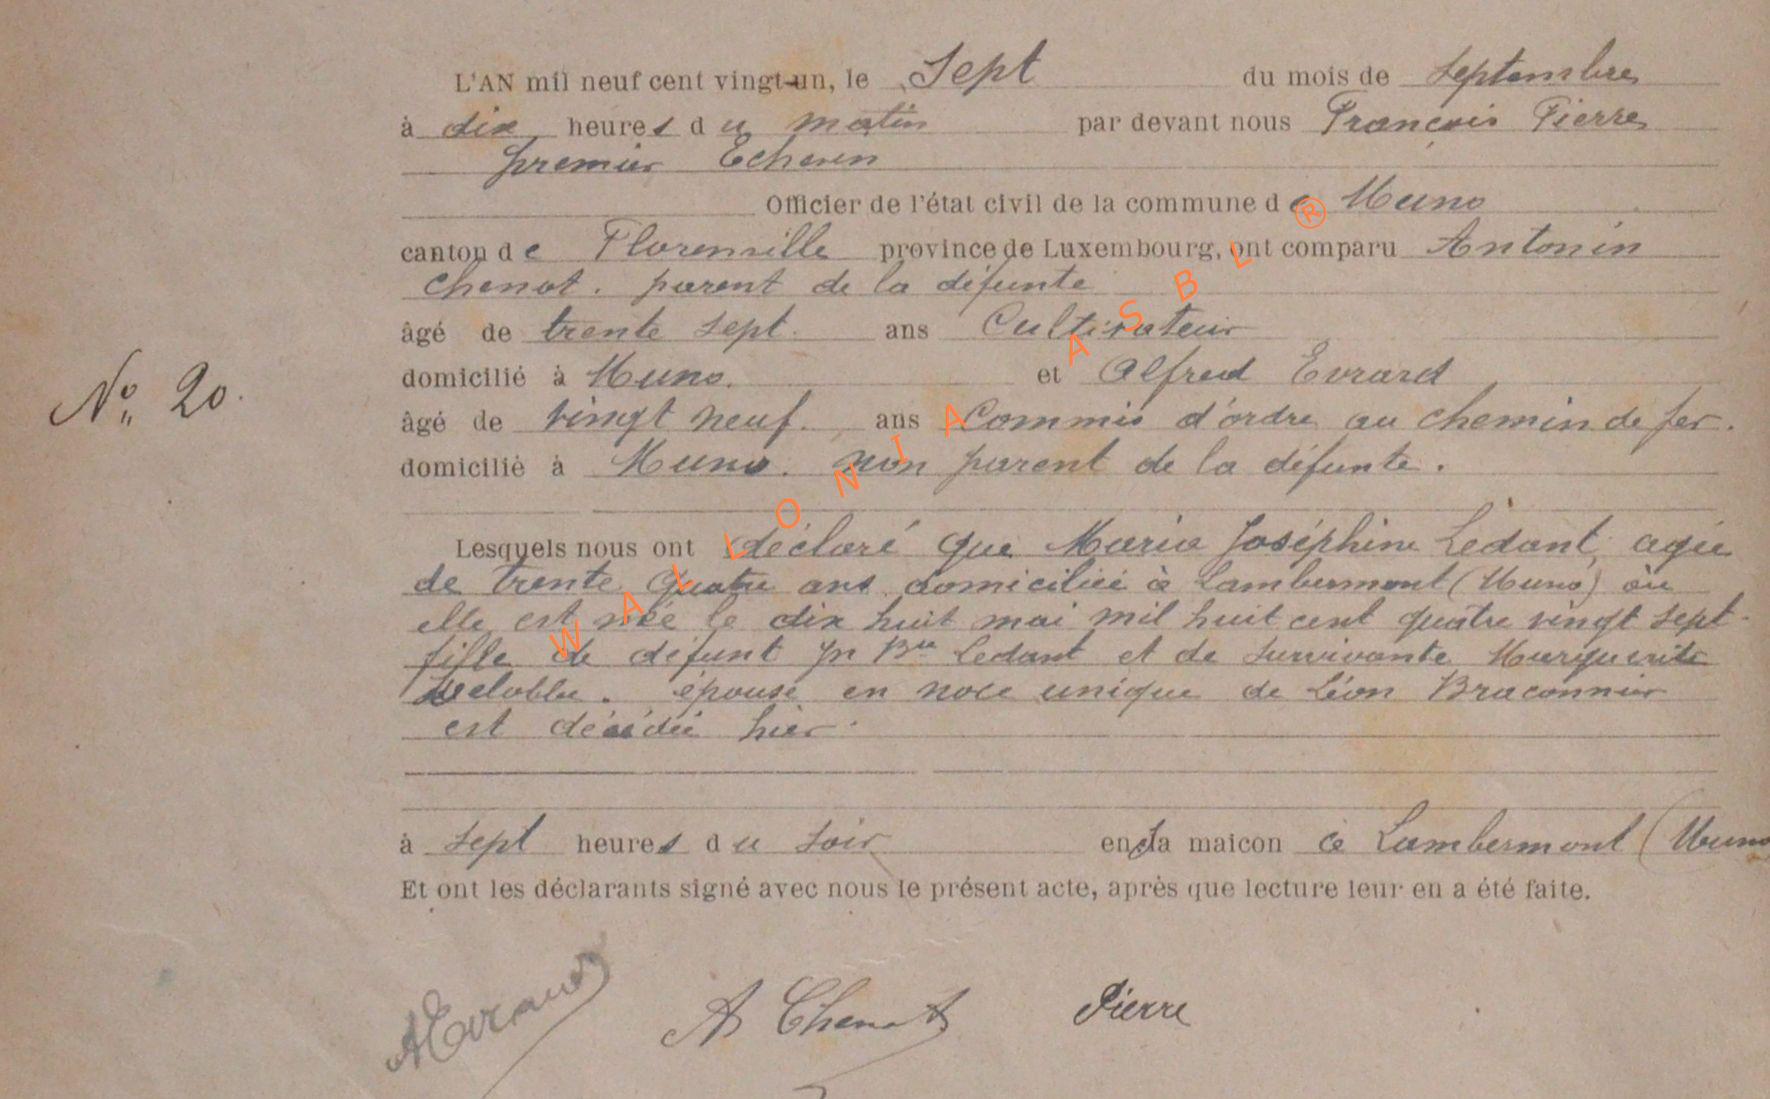 L'AN mil neuf cent vingt-un, le Sept du mois de Septembre
à dix heures du matin par devant nous François Pierre
premier Echevin
Officier de l'état civil de la commune de Muno
canton de Florenville province de Luxembourg, ont comparu Antonin
Chenot. parent de la défunte
âgé de trente sept. ans Cultivateur
domicilié à Muno. et Alfred Evrard
N° 20.
âgé de vingt neuf. ans Commis d'ordre au chemin de fer.
domicilié à Muno. non parent de la défunte.
Lesquels nous ont déclaré que Maria Joséphine Lédant, agée
de trente quatre ans domiciliée à Lambermont (Muno) où
elle est née le dix huit mai mil huit cent quatre vingt sept
fille de défunt Jn Bte Ledant et de survivante Marguerite
épouse en noce unique de Léon Braconnier
est décédée hier.
à sept heures du soir en sa maicon à Lambermont (Muno
Et ont les déclarants signé avec nous le présent acte, après que lecture leur en a été faite.
AEvrard A Chenot Pierre
WALLONIA ASBL ®